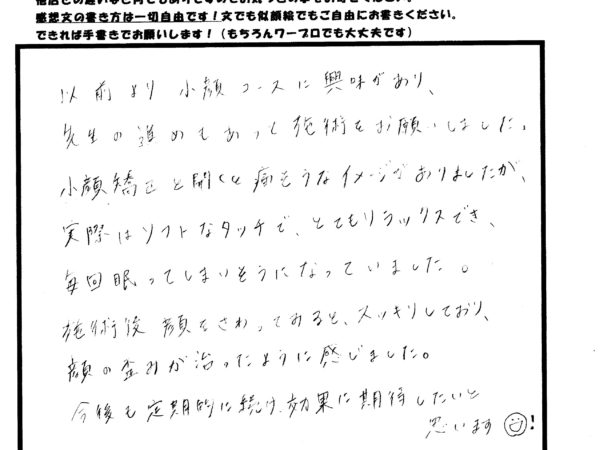 感想文の書き方は一切自由です！文でも似顔絵でもご自由にお書きください。
できれば手書きでお願いします！（もちろんワープロでも大丈夫です）
以前より小顔コースに興味があり、
先生の進めもあって施術をお願いしました。
小顔矯正と聞くと痛そうなイメージがありましたが、
実際はソフトなタッチで、とてもリラックスでき、
毎回眠ってしまいそうになっていました。
施術後顔をさわってみると、スッキリしており、
顔の歪みが治ったように感じました。
今後も定期的に続け効果に期待したいと
思います！